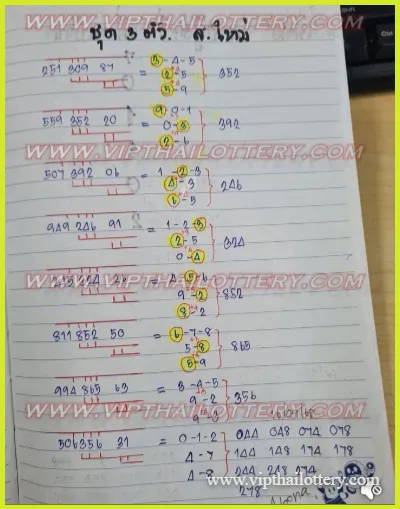 ชุด 3 ตัว. ส.ใหม่
WWW.VIPTHAILOTTERY.COM
251 309 87 = 3-4-5
2-5
5-9
352
559 352 20 = 9-0-1
0-3
2-6
392
WWW.VIPTHAILOTTERY.COM
507 392 06 = 1-2-3
4-3
6-5
246
WWW.VIPTHAILOTTERY.COM
949 246 91 = 1-2-3
2-5
0-4
324
WWW.VIPTHAILOTTERY.COM
324 = 4-5-6
9-2
8-2
852
811 852 50 = 6-7-8
5-8
5-9
865
WWW.VIPTHAILOTTERY.COM
994 865 63 = 3-4-5
9-2
356
WWW.VIPTHAILOTTERY.COM
506356 31 = 0-1-2
4-7
4-8
044 048 074 078
144 148 174 178
244 248 274
278
www.vipthailottery.com